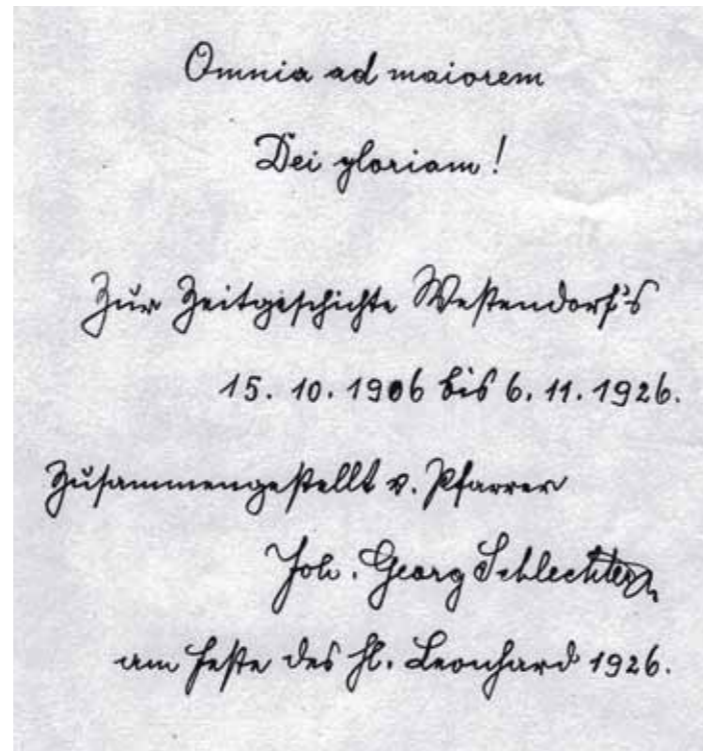 Omnia ad maiorem
Dei gloriam!
Zur Zeitgeschichte Westendorf's
15. 10. 1906 bis 6. 11. 1926.
Zusammengestellt v. Pfarrer
Joh. Georg Schlechter
am Feste des hl. Leonhard 1926.